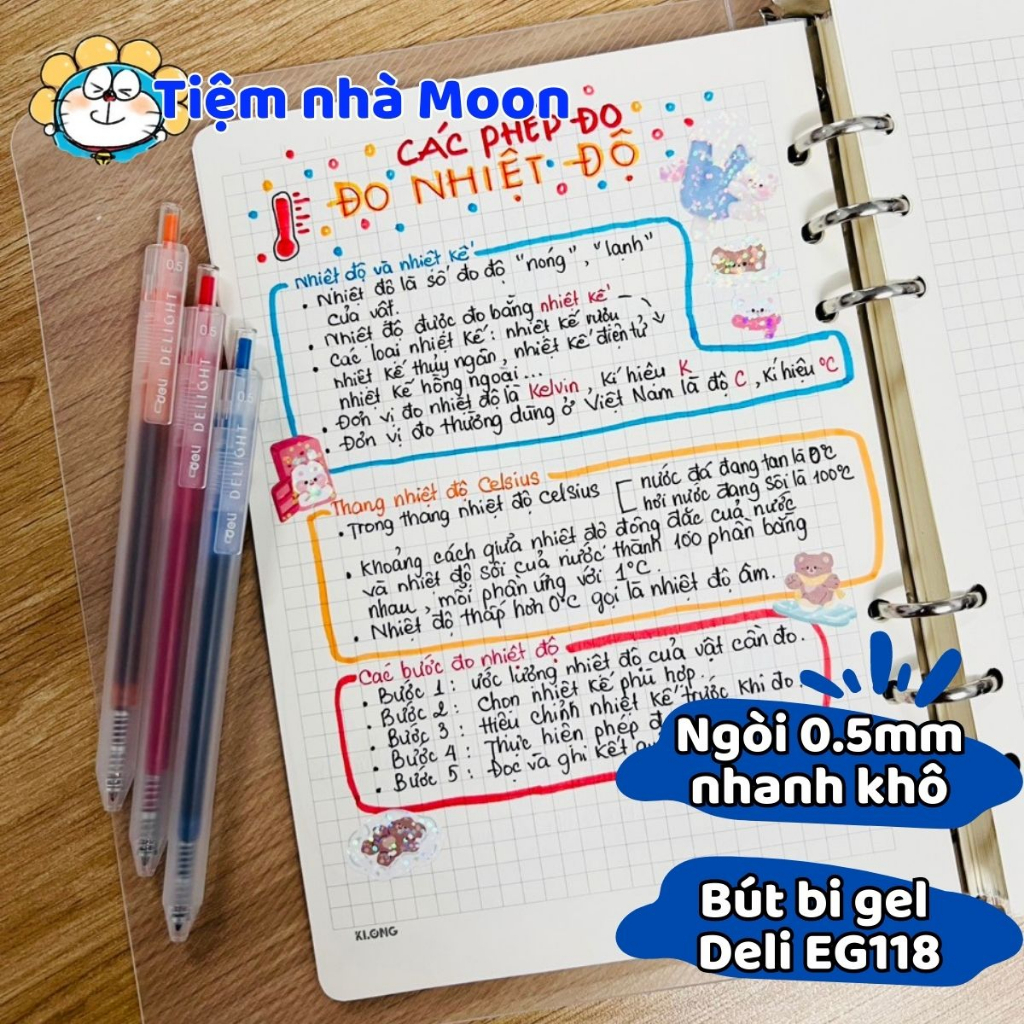 Tiệm nhà Moon
CÁC PHÉP ĐO
ĐO NHIỆT ĐỘ
Nhiệt độ và nhiệt kế
• Nhiệt độ là số đo độ "nóng", "lạnh"
của vật.
• Nhiệt độ được đo bằng nhiệt kế
• Các loại nhiệt kế: nhiệt kế rượu
nhiệt kế thủy ngân, nhiệt kế điện tử
nhiệt kế hồng ngoại...
• Đơn vị đo nhiệt độ là Kelvin, kí hiệu K
• Đơn vị đo thường dùng ở Việt Nam là độ C, kí hiệu °C
Thang nhiệt độ Celsius
• Trong thang nhiệt độ Celsius [ nước đá đang tan là 0°C
hơi nước đang sôi là 100°C
• Khoảng cách giữa nhiệt độ đông đặc của nước
và nhiệt độ sôi của nước thành 100 phần bằng
nhau, mỗi phần ứng với 1°C.
• Nhiệt độ thấp hơn 0°C gọi là nhiệt độ âm.
Các bước đo nhiệt độ
• Bước 1: ước lượng nhiệt độ của vật cần đo.
• Bước 2: Chọn nhiệt kế phù hợp.
• Bước 3: Hiệu chỉnh nhiệt kế trước khi đo.
• Bước 4: Thực hiện phép
• Bước 5: Đọc và ghi kết
KLONG
0.5 deli DELIGHT
0.5 deli DELIGHT
0.5 deli DELIGHT
Ngòi 0.5mm
nhanh khô
Bút bi gel
Deli EG118